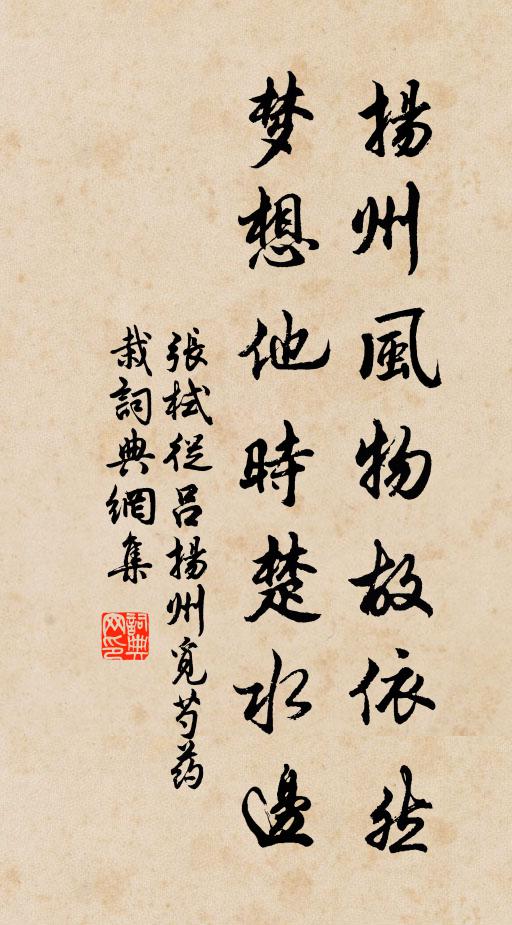 揚州風物故依然
梦想他時楚水邊
張栻從呂揚州覓芍药
栽詞典網集
詞典网印